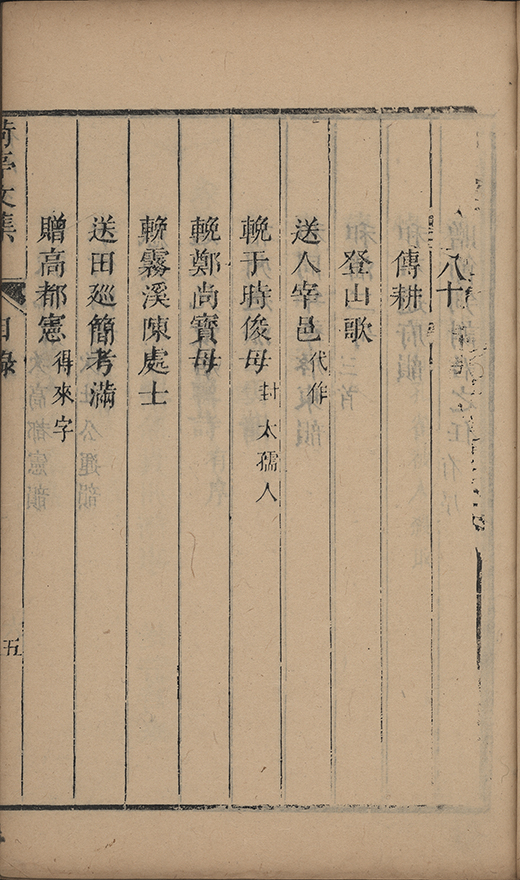 八十
傳耕
登山歌
送人宰邑代作
輓于時俊母封太孺人
輓鄭尚寶母
輓霧溪陳處士
送田廵簡考滿
贈高都憲得來字
文集 目錄 五